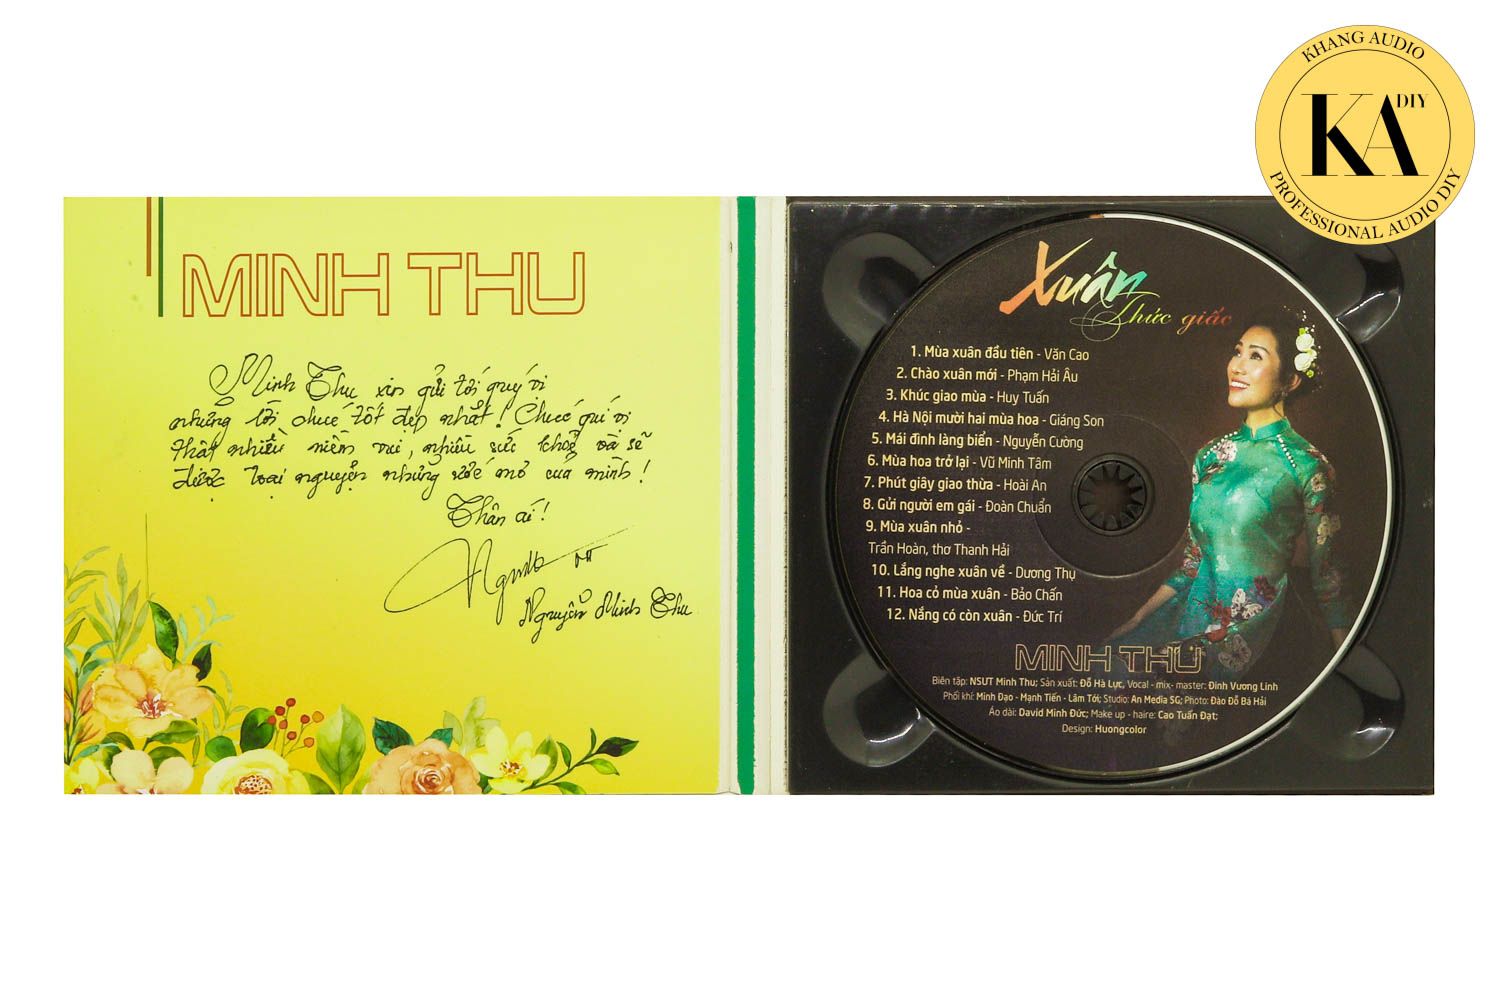 KHANG AUDIO
KA DIY
PROFESSIONAL AUDIO DIY
MINH THU
Minh Thu xin gửi tới quý vị
những lời chúc tốt đẹp nhất! Chúc quí vị
thật nhiều niềm vui, nhiều sức khoẻ và sẽ
được toại nguyện những ước mơ của mình!
Thân ái!
Nguyễn Minh Thu
Xuân
Thức giấc
1. Mùa xuân đầu tiên - Văn Cao
2. Chào xuân mới - Phạm Hải Âu
3. Khúc giao mùa - Huy Tuấn
4. Hà Nội mười hai mùa hoa - Giáng Son
5. Mái đình làng biển - Nguyễn Cường
6. Mùa hoa trở lại - Vũ Minh Tâm
7. Phút giây giao thừa - Hoài An
8. Gửi người em gái - Đoàn Chuẩn
9. Mùa xuân nhỏ -
Trần Hoàn, thơ Thanh Hải
10. Lắng nghe xuân về - Dương Thụ
11. Hoa cỏ mùa xuân - Bảo Chấn
12. Nắng có còn xuân - Đức Trí
MINH THU
Biên tập: NSUT Minh Thu; Sản xuất: Đỗ Hà Lực, Vocal - mix- master: Đinh Vương Linh
Phối khí: Minh Đạo - Mạnh Tiến - Lâm Tới; Studio: An Media SG; Photo: Đào Đỗ Bá Hải
Áo dài: David Minh Đức; Make up - haire: Cao Tuấn Đạt;
Design: Huongcolor